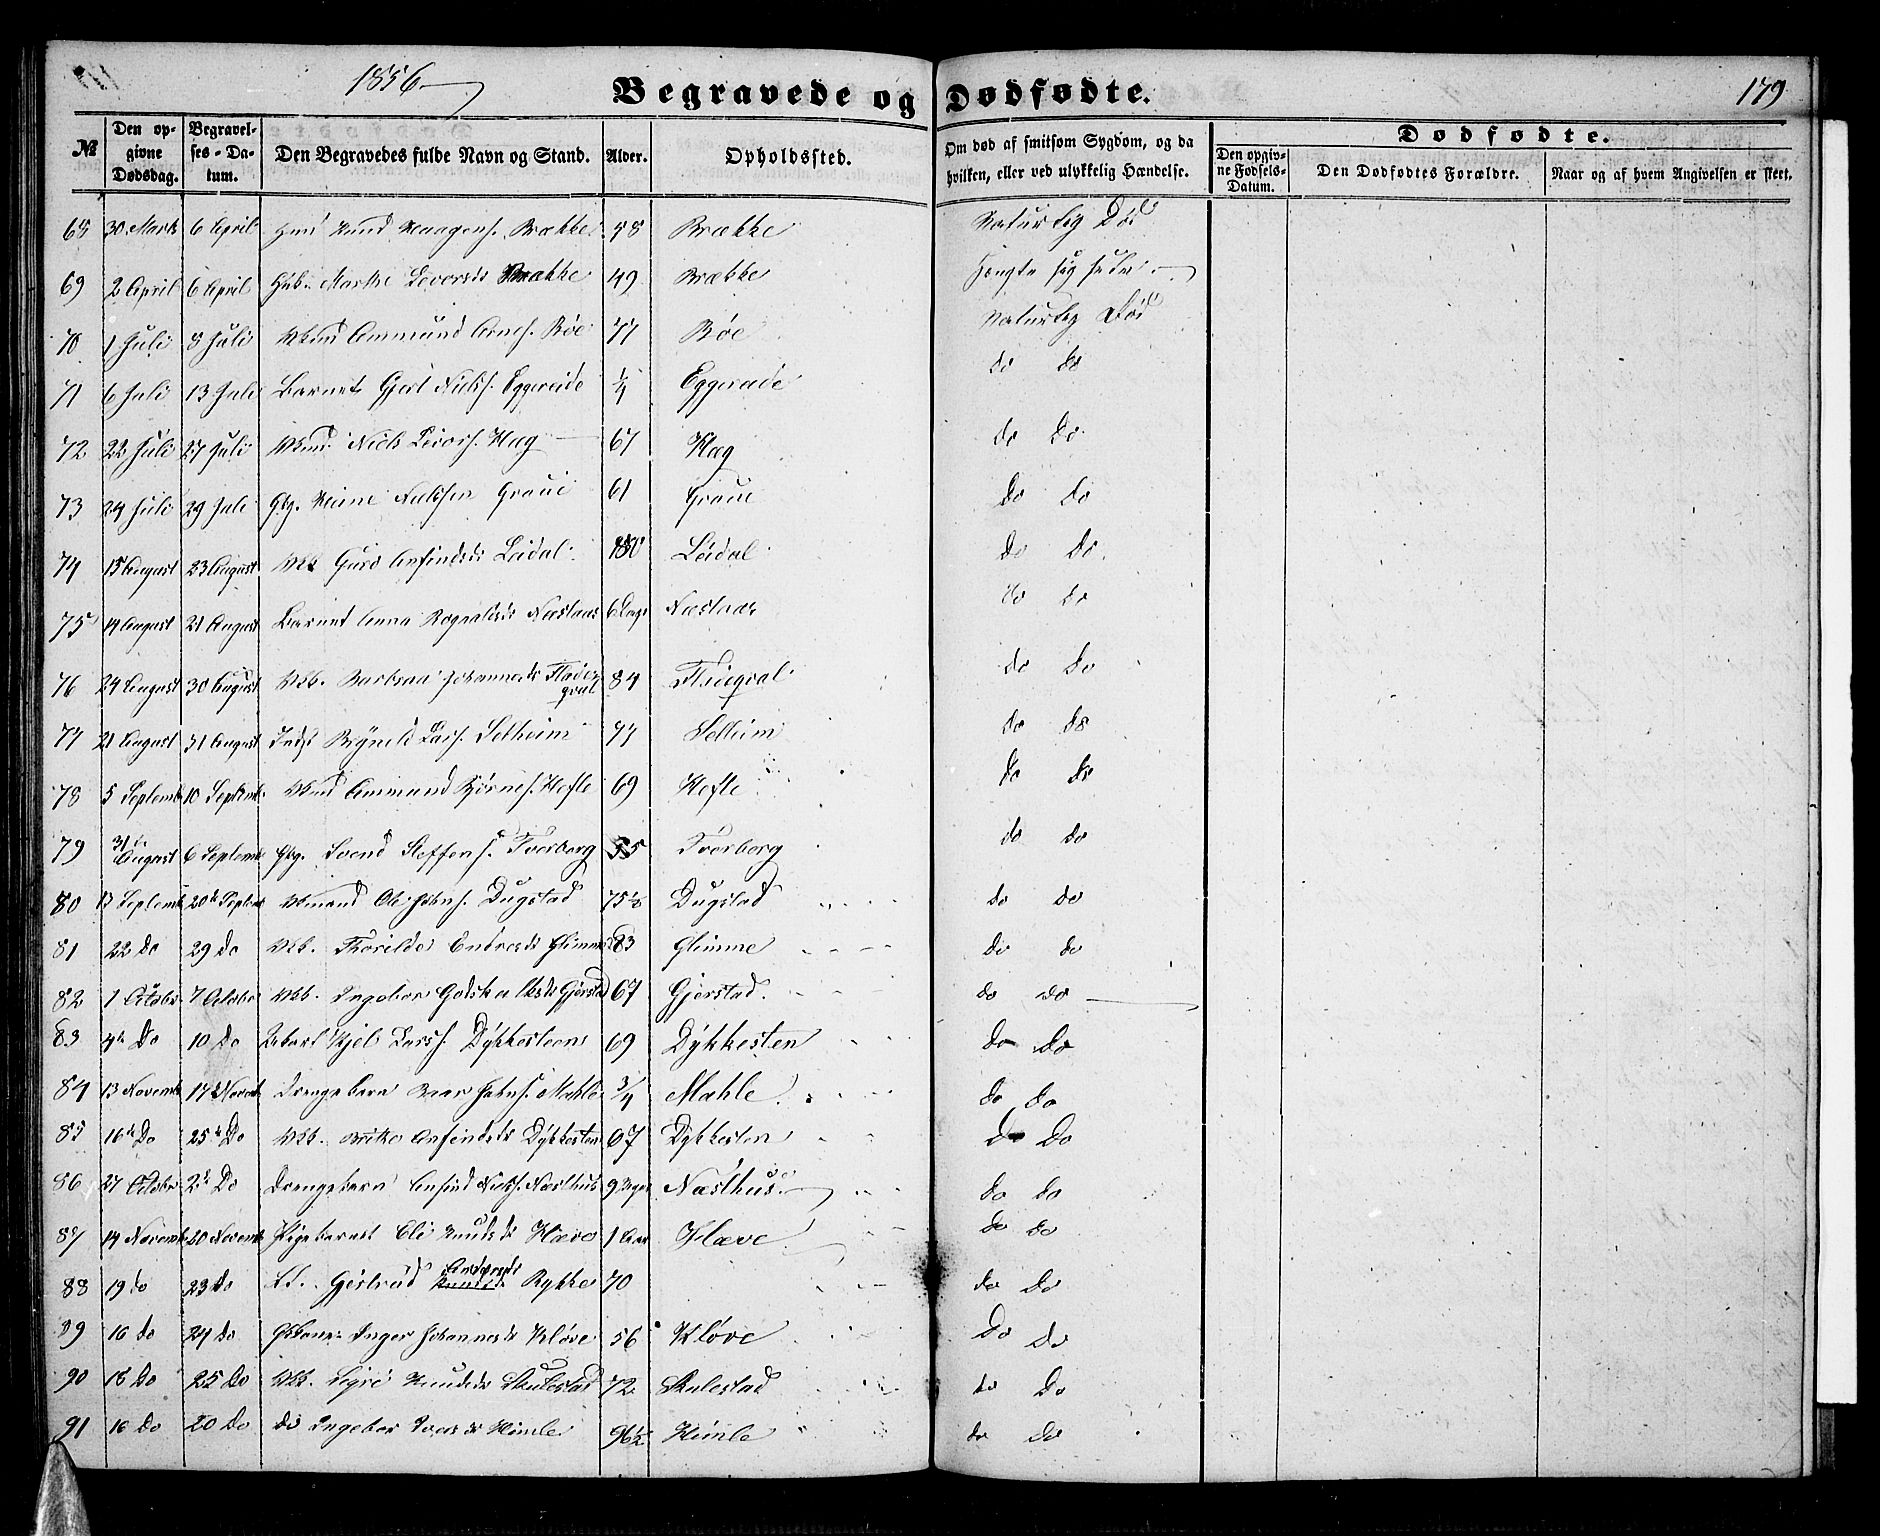 1856
Begravede og Dødfødte.
179
№ Den opgivne Dødsdag. Begravelses-Datum. Den Begravedes fulde Navn og Stand. Alder. Opholdssted. Om død af smitsom Sygdom, og da hvilken, eller ved ulykkelig Hændelse. Dødfødte.
Den opgivne Fødsels-Datum. Den Dødfødtes Forældre. Naar og af hvem Angivelsen er skeet.
68 30 Marts 6 April Knud Haagens. Brække 58 Brække Naturlig Død
69 2 April 6 April Marthe Brække 49 Brække Hængte sig selv
70 1 Juli 8 Juli Ammund Arnes. Røe 77 Røe Naturlig Død
71 6 Juli 13 Juli Barnet Gjert Niels. Eggereide 1/4 Eggereide do do
72 22 Juli 27 Juli Niels Ivers. Hæg 67 Hæg do do
73 24 Juli 29 Juli Nielssen Graue 61 Graue do do
74 15 August 23 August Guro Anfindsdr Leidal Leidal do do
75 14 August 21 August Barnet Anna Næstaas 6 Dage Næstaas do do
76 24 August 30 August Johannesdr 84 do do
77 21 August 31 August Brynild Lars. Selheim 77 Selheim do do
78 5 Septemb 10 Septemb Ammund Bjørnes. Hefte 69 Hefte do do
79 31te August 6 Septemb Svend Steffens. Tverberg 55 Tverberg do do
80 13 Septemb 20de Septemb Ole Johns. Dugstad 75 1/2 Dugstad do do
81 22 Do 29 Do Thorilde Endresdr Glimme 83 Glimme do do
82 1 Octobr 7 Octobr Ingebor Godskalksdr Gjerstad 67 Gjerstad. do do
83 4de Do 10 Do Kjel Larss. Dykkesteen 69 Dykkesten Do Do
84 13 Novemb 17 Novemb Drengebarn Johns. Mahle 3/4 Mahle do do
85 16de Do 25de Do Britha Anfindsdr Dykkesten 67 Dykkesten Do Do
86 27 Octobr 2d Do Drengebarn Anfind Niels. Næsthus 9 Næsthus do do
87 14 Novemb 20 Novemb Pigebarnet Eli Knudsdr Hæve 1 Aar Hæve do do
88 19 do 23 Do Gjertrud Andersdr Rykke 70 do Do
89 16 do 24 do Inger Johannesdr Kløve 56 Kløve Do Do
90 18 Do 25 Do Sygri Knudsdr Skulestad 72 Skulestad do Do
91 16 Do 20 Do do Ingebor Iversdr Himle 96 1/2 Himle do Do